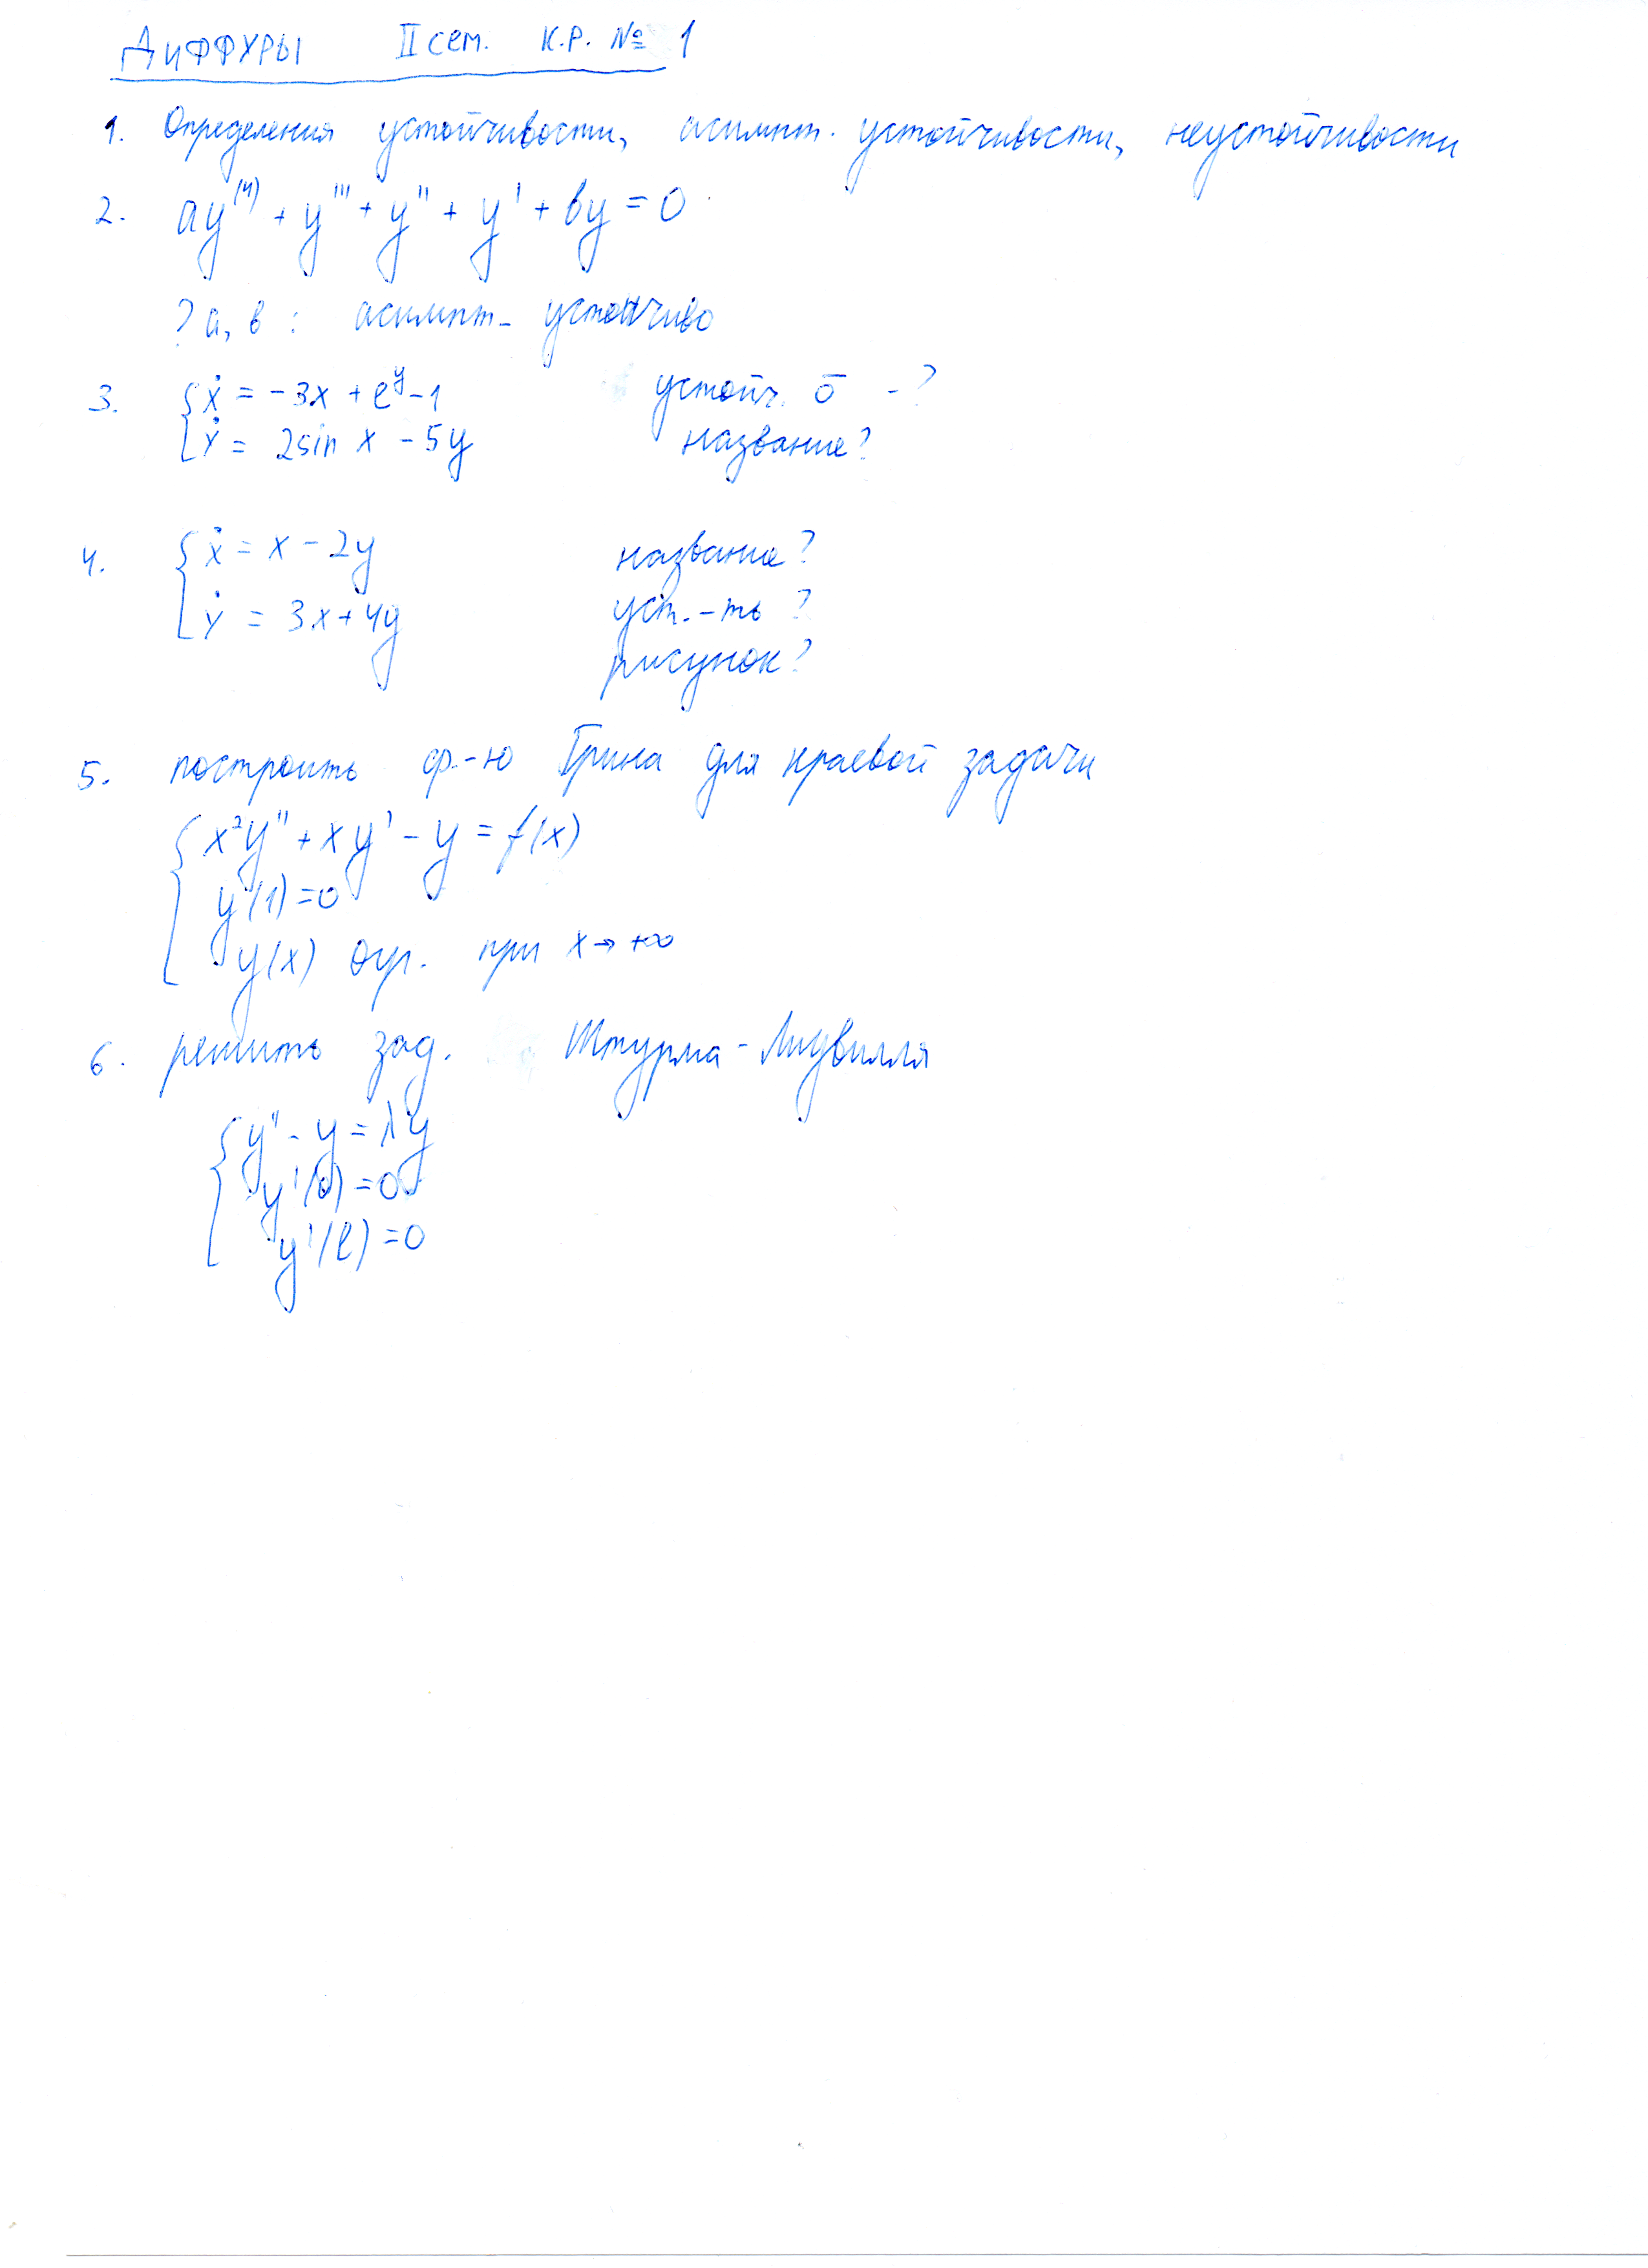 ДИФФУРЫ II сем. К.Р. № 1
1. Определения устойчивости, асимпт. устойчивости, неустойчивости
2. ay⁽⁴⁾ + y''' + y'' + y' + by = 0
? a, b : асимпт. устойчиво
3. { ẋ = -3x + e^y - 1 устойч. ō - ?
ẏ = 2sin x - 5y название?
4. { ẋ = x - 2y название?
ẏ = 3x + 4y уст.-ть ?
рисунок?
5. построить ф.-ю Грина для краевой задачи
{ x²y'' + xy' - y = f(x)
y(1) = 0
y(x) огр. при x → +∞
6. решить зад. Штурма - Лиувилля
{ y'' - y = λy
y'(0) = 0
y'(l) = 0